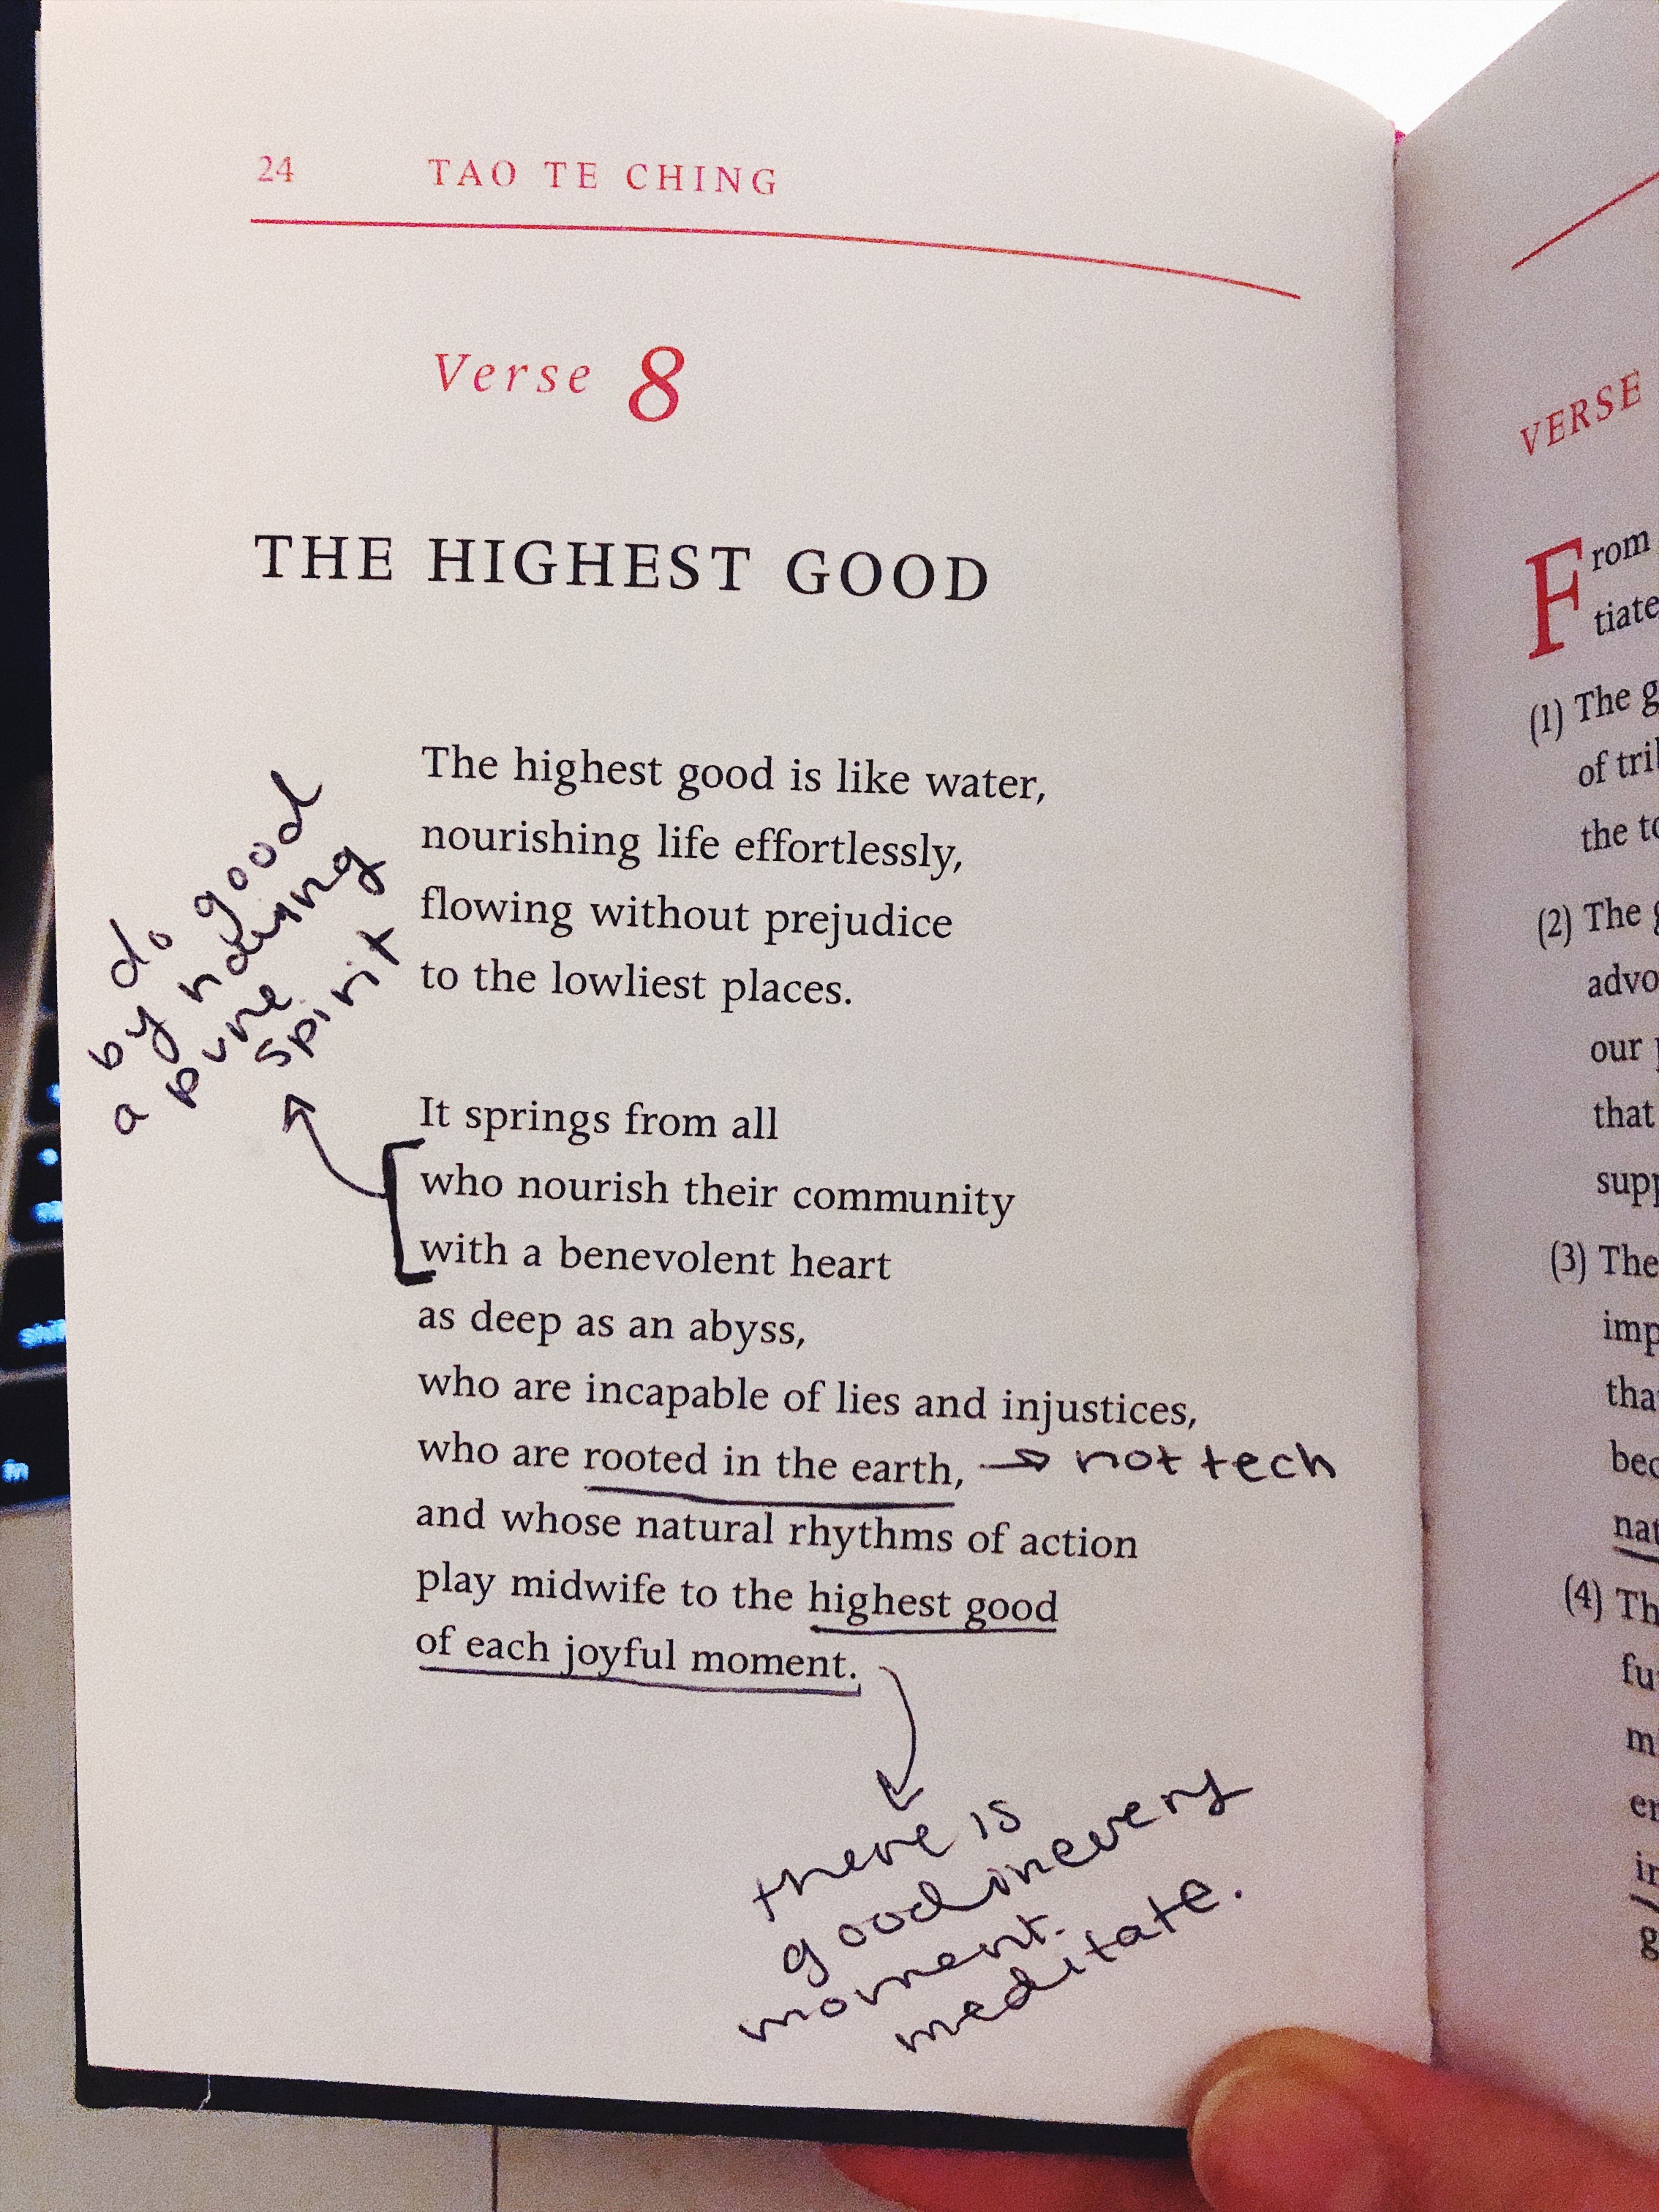 24 TAO TE CHING
Verse 8
THE HIGHEST GOOD
The highest good is like water,
nourishing life effortlessly,
flowing without prejudice
to the lowliest places.
It springs from all
who nourish their community
with a benevolent heart
as deep as an abyss,
who are incapable of lies and injustices,
who are rooted in the earth, → not tech
and whose natural rhythms of action
play midwife to the highest good
of each joyful moment.
do good
by
a pure
spirit
there is
good in every
moment.
meditate.
VERSE
From
(1) The
of
the
(2) The
our
that
(3) The
(4)